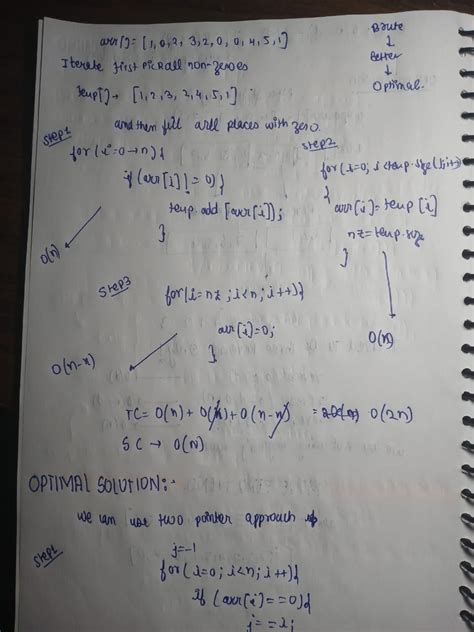 arr[] = [1, 0, 2, 3, 2, 0, 0, 4, 5, 1]
Brute
↓
Better
↓
Optimal.
Iterate first pick all non-zeroes
temp[] → [1, 2, 3, 2, 4, 5, 1]
and then fill all places with zero.
Step1
for(i=0→n){
if(arr[i]!=0){
temp.add[arr[i]];
}
O(n)
Step2
for(i=0; i<temp.size(); i++)
{
arr[i]=temp[i]
nz=temp.size
}
O(x)
Step3
for(i=nz; i<n; i++){
arr[i]=0;
}
O(n-x)
TC = O(n) + O(x) + O(n-x) = O(2n)
SC → O(N)
OPTIMAL SOLUTION:-
we can use two pointer approach
Step1
j=-1
for(i=0; i<n; i++){
if(arr[i]==0){
j=i;